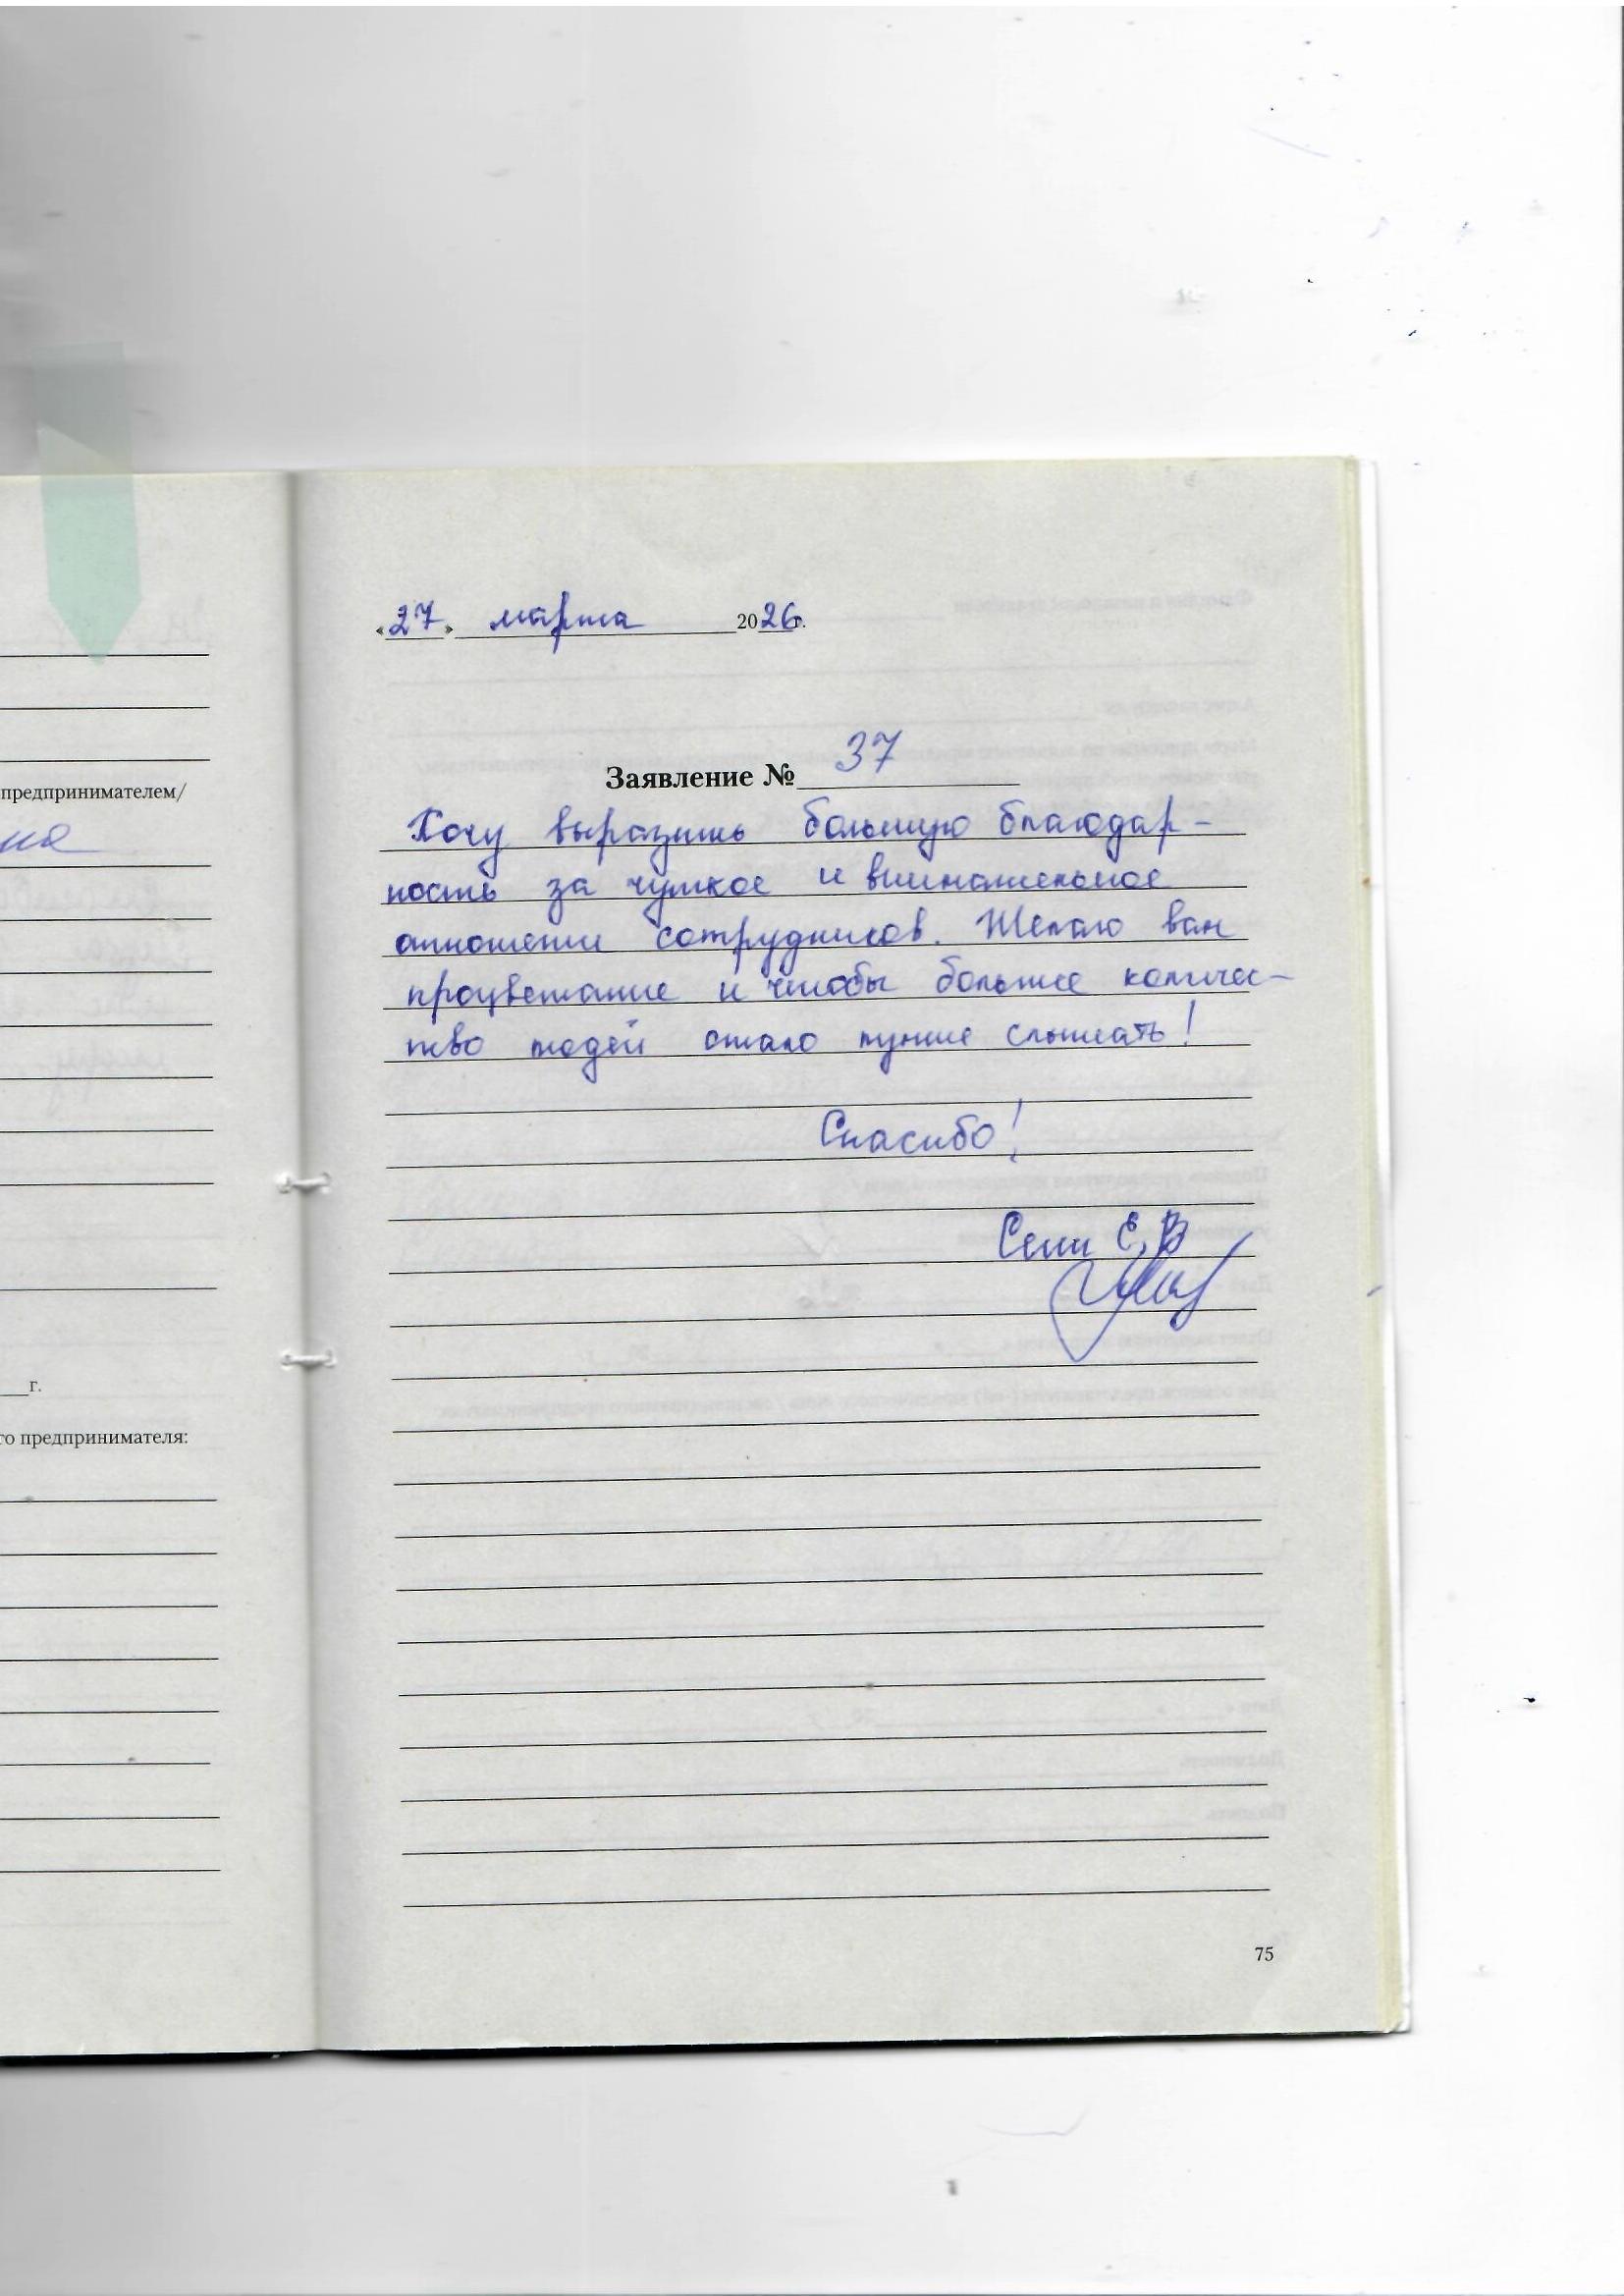 предпринимателем/
г.
го предпринимателя:
«27» марта 2026г.
Заявление № 37
Хочу выразить большую благодар-
ность за чуткое и внимательное
отношение сотрудников. Желаю вам
процветание и чтобы большее количес-
тво людей стало лучше слышать!
Спасибо!
Е.В
75